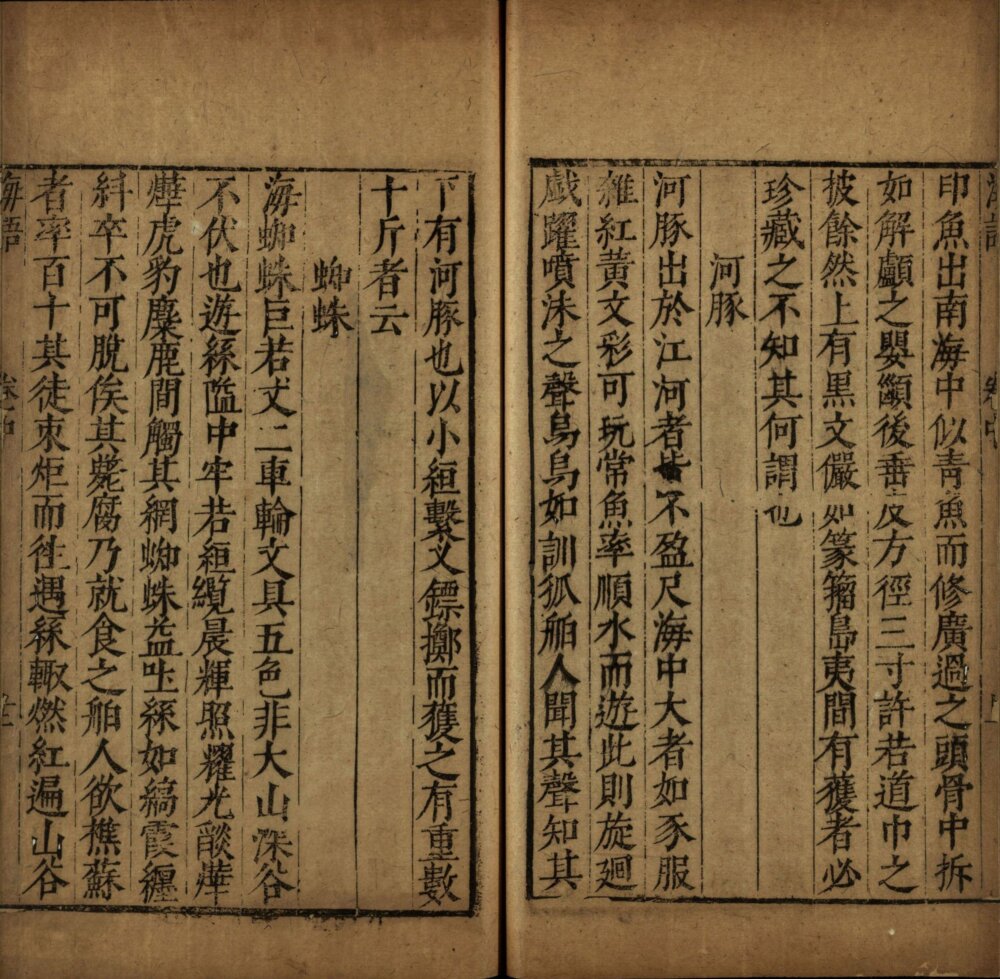 印魚出南海中似青魚而修廣過之頭骨中拆
如解顱之嬰顖後垂皮方徑三寸許若道巾之
披餘然上有黑文儼如篆籀島夷間有獲者必
珍藏之不知其何謂也
河豚
河豚出於江河者皆不盈尺海中大者如豕服
雜紅黃文彩可玩常魚率順水而遊此則旋廻
戲躍噴沫之聲烏烏如訓狐舶人聞其聲知其
下有河豚也以小絙繫叉鏢擲而獲之有重數
十斤者云
蜘蛛
海蜘蛛巨若丈二車輪文具五色非大山深谷
不伏也遊絲隘中牢若絙纜晨輝照耀光燄爗
爗虎豹麋鹿間觸其網蜘蛛益吐絲如縞霞纏
糾卒不可脫俟其斃腐乃就食之舶人欲樵蘇
者率百十其徒束炬而徃遇絲輙燃紅遍山谷
海語 卷中